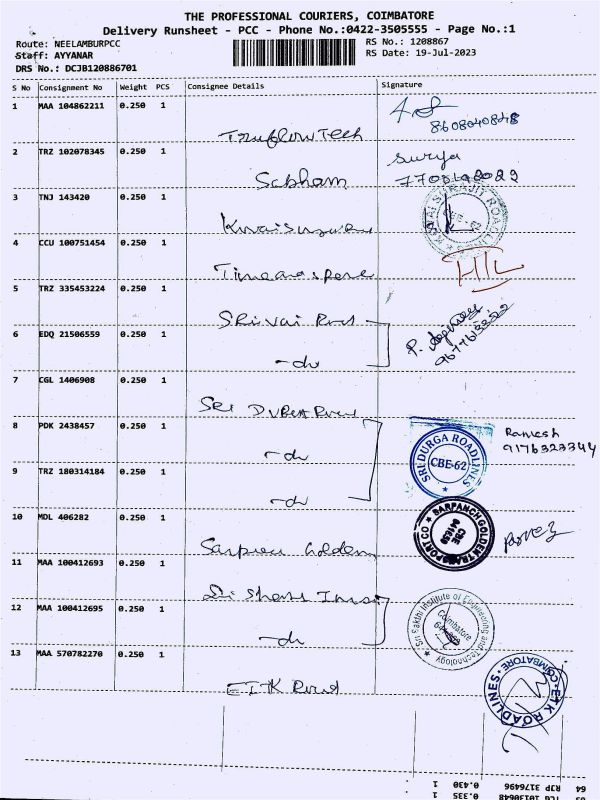 THE PROFESSIONAL COURIERS, COIMBATORE
Delivery Runsheet - PCC - Phone No.:0422-3505555 - Page No.:1
Route: NEELAMBURPCC
RS No.: 1208867
Staff: AYYANAR
RS Date: 19-Jul-2023
DRS No.: DCJB120886701
S No Consignment No Weight PCS Consignee Details Signature
1 MAA 104862211 0.250 1
8608040848
2 TRZ 102078345 0.250 1 Surya
Sabham
3 TNJ 143420 0.250 1
4 CCU 100751454 0.250 1
5 TRZ 335453224 0.250 1
6 EDQ 21506559 0.250 1
-do
7 CGL 1406908 0.250 1
Sri
8 PDK 2438457 0.250 1
-do
SRI DURGA ROADLINES
CBE-62
Ramesh
9176323344
9 TRZ 180314184 0.250 1
-do
10 MDL 406282 0.250 1
Golden
SARPANCH GOLDEN TRANSPORT CO
CBE
641659
11 MAA 100412693 0.250 1
12 MAA 100412695 0.250 1
-do
Sri Sakthi Institute of Engineering and Technology
Coimbatore
13 MAA 570782270 0.250 1
ETK Road
E.T.K ROADLINES
COIMBATORE
64 RJP 3176496 0.430 1
TCG 10130648 0.335 1